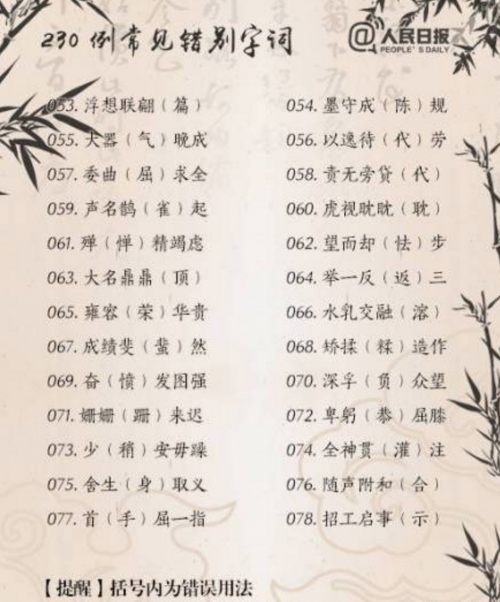 230例常见错别字词
@人民日报
PEOPLE'S DAILY
053. 浮想联翩（篇）
054. 墨守成（陈）规
055. 大器（气）晚成
056. 以逸待（代）劳
057. 委曲（屈）求全
058. 责无旁贷（代）
059. 声名鹊（雀）起
060. 虎视眈眈（耽）
061. 殚（惮）精竭虑
062. 望而却（怯）步
063. 大名鼎鼎（顶）
064. 举一反（返）三
065. 雍容（荣）华贵
066. 水乳交融（溶）
067. 成绩斐（蜚）然
068. 矫揉（糅）造作
069. 奋（愤）发图强
070. 深孚（负）众望
071. 姗姗（跚）来迟
072. 卑躬（恭）屈膝
073. 少（稍）安毋躁
074. 全神贯（灌）注
075. 舍生（身）取义
076. 随声附和（合）
077. 首（手）屈一指
078. 招工启事（示）
【提醒】括号内为错误用法